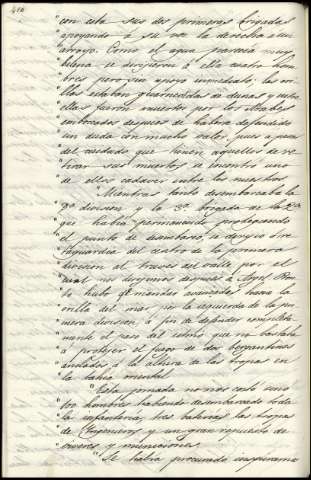 416
"con esta sus dos primeras brigadas
"apoyando á su vez la derecha á un
"arroyo. Como el agua parecia muy
"buena se dirijieron á ella cuatro hom
"bres pero sin apoyo inmediato, las ori
"llas estaban guarnecidas de dunas y
ellas fueron muertos por los árabes
emboscados despues de haberse defendido
sin duda con mucho valor, pues á pesar
"del cuidado que tienen aquellos de re
"tirar sus muertos se encontró uno
"de ellos cadaver entre los nuestros
"Mientras tanto desembarcaba la
"2ª division y la 3ª brigada de la 1ª
"que habia permanecido protegiendo
"el punto de desembarco, se dirijio á re
taguardia del centro de la primera
division al través del valle por el
cual nos dirijimos despues á
hubo mandar avanzadas hacia la
orilla del mar, por la izquierda de la pri
mera division á fin de defender completa
mente el paso del istmo que no bastaba
á protejer el fuego de los bergantines
"anclados á la altura de las tropas en
"la bahia oriental.
"Esta jornada no nos costó sino
"los hombres habiendo desembarcado toda
la infanteria, tres baterias, las tropas
"de Ingenieros y un gran repuesto de
"viveres y municiones.
"Se habia procurado asegurarse